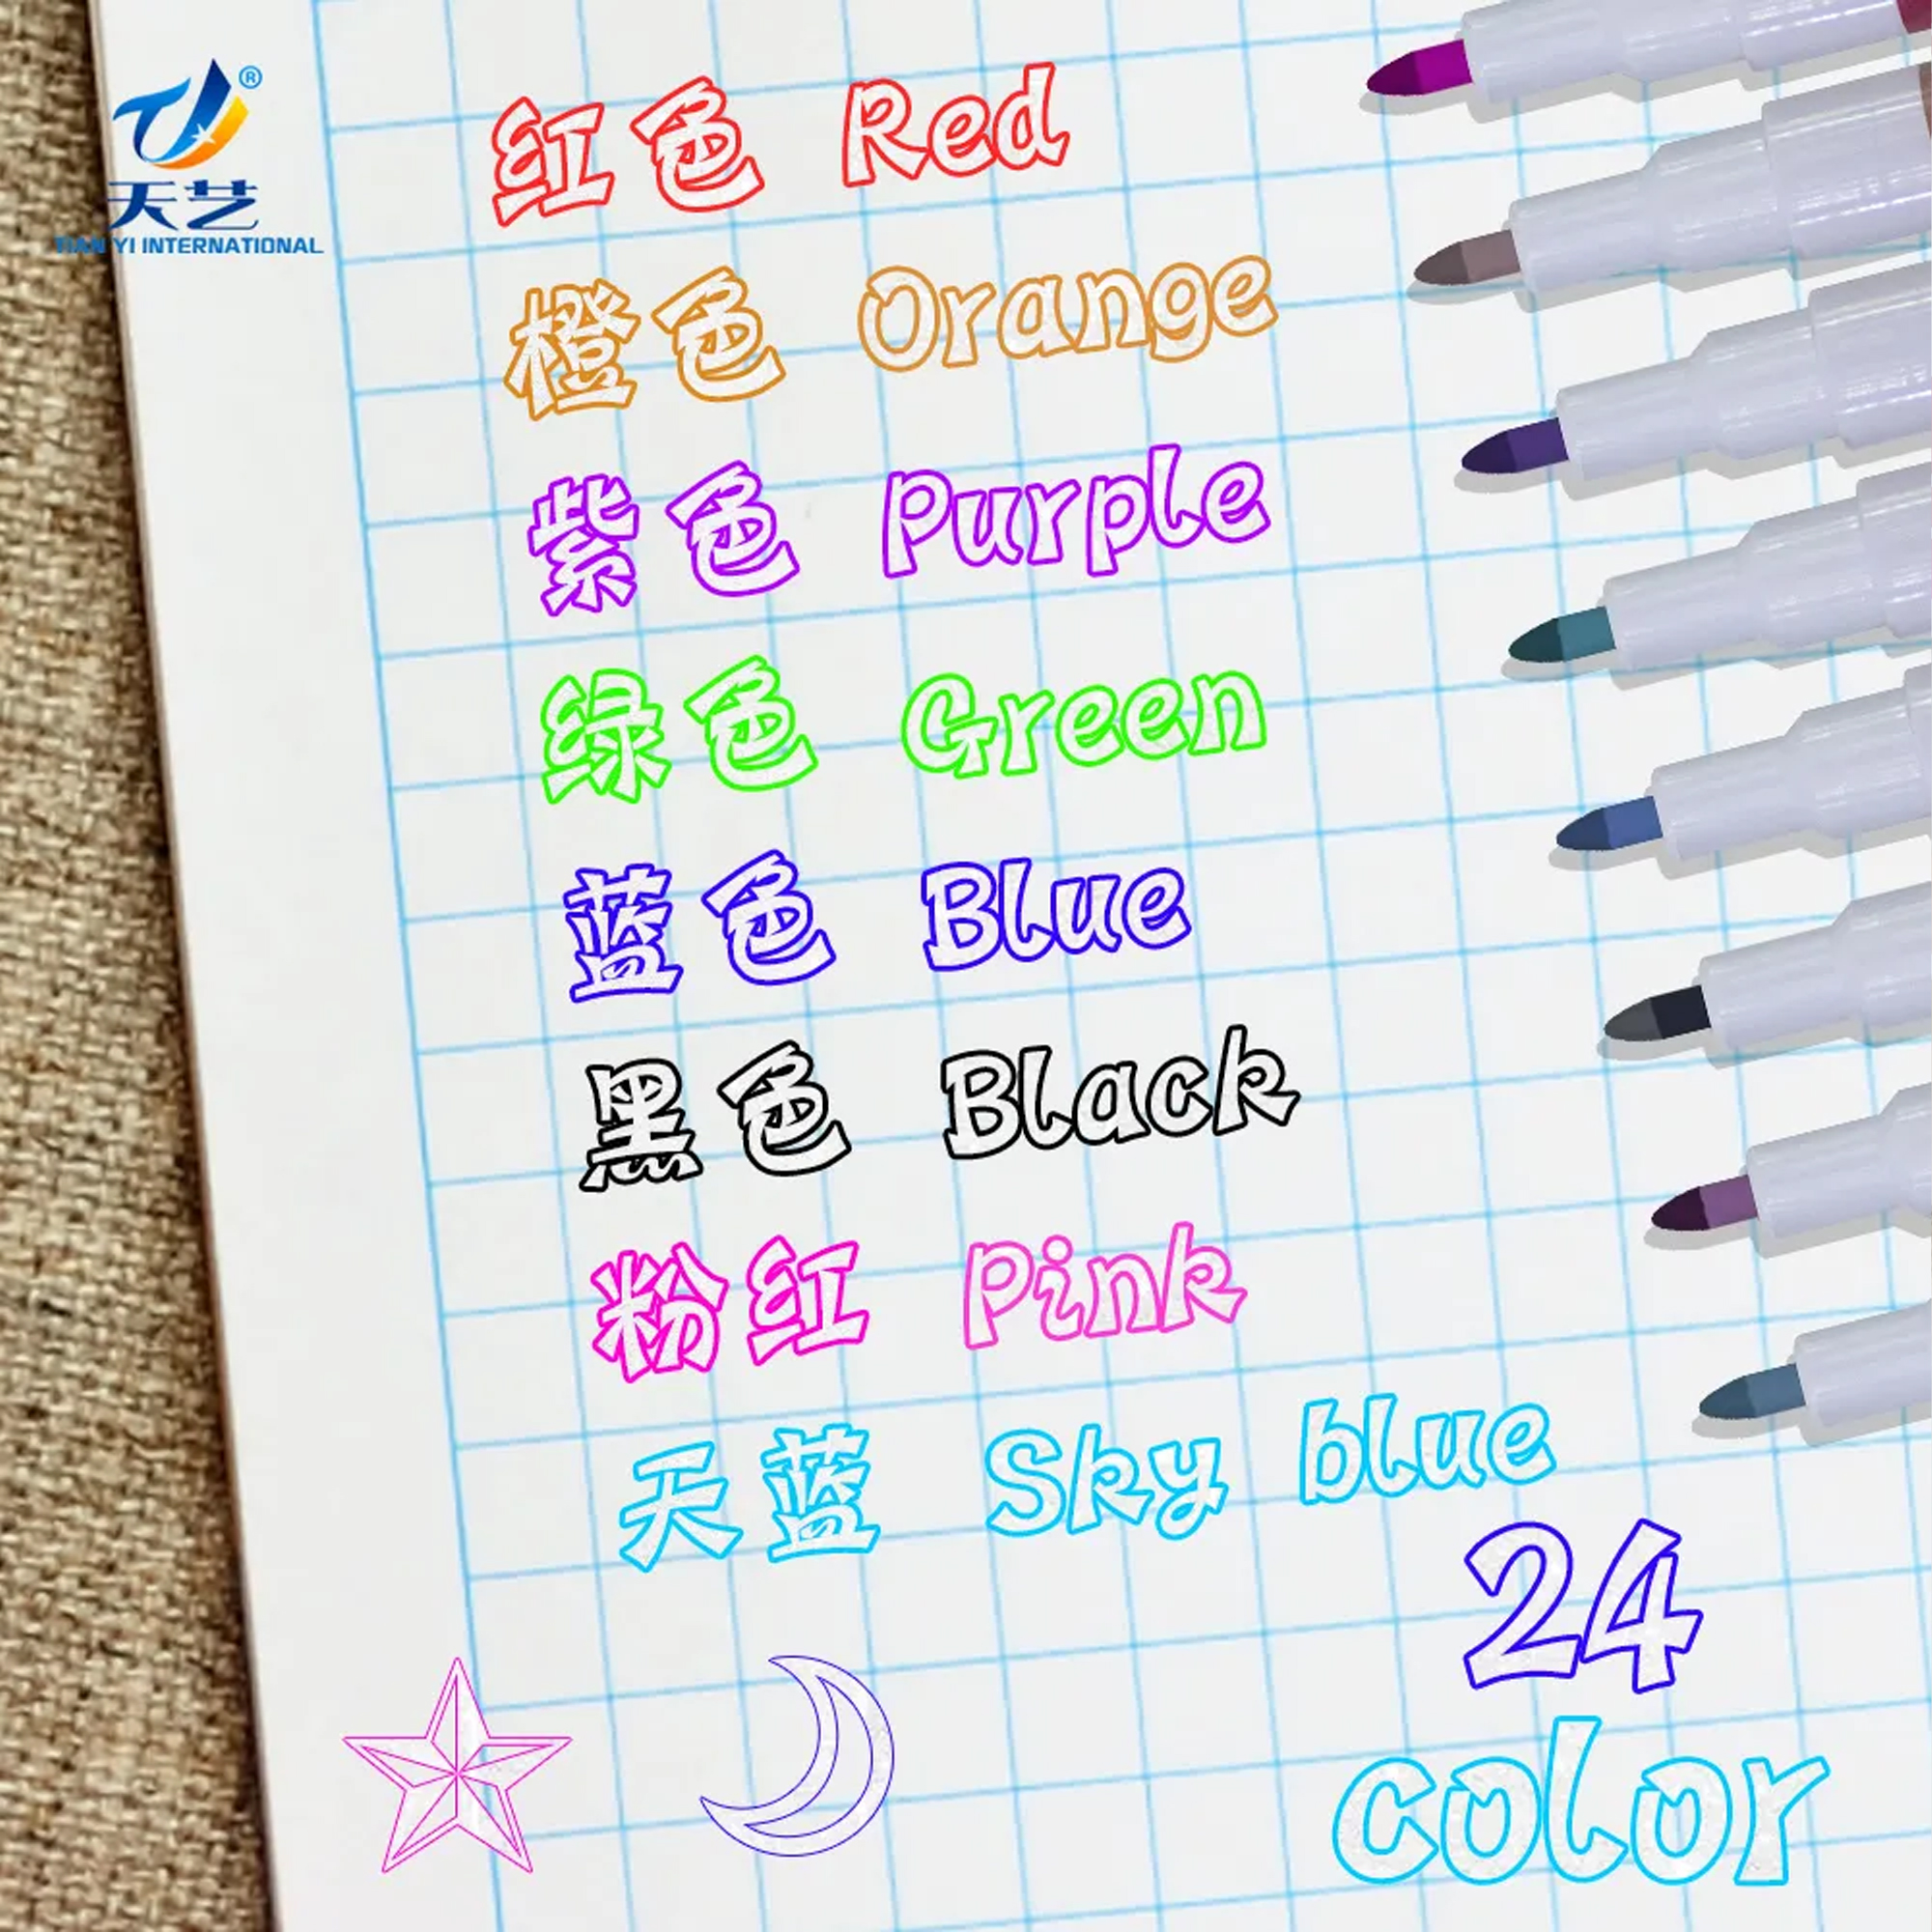 ®
天艺
TIAN YI INTERNATIONAL
红色 Red
橙色 Orange
紫色 Purple
绿色 Green
蓝色 Blue
黑色 Black
粉红 Pink
天蓝 Sky blue
24
color